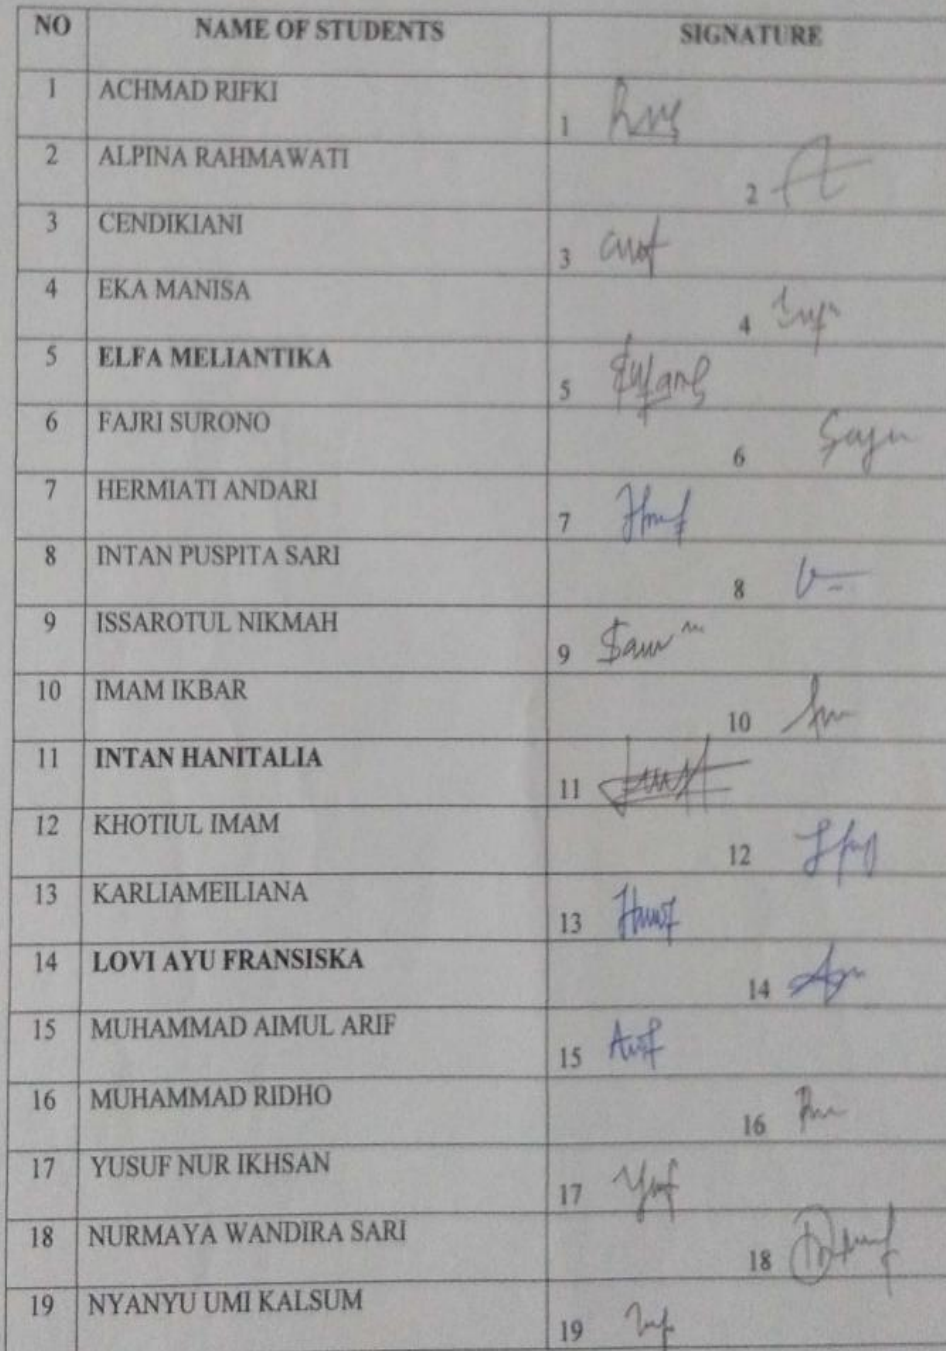 NO NAME OF STUDENTS SIGNATURE
1 ACHMAD RIFKI 1
2 ALPINA RAHMAWATI 2
3 CENDIKIANI 3
4 EKA MANISA 4
5 ELFA MELIANTIKA 5
6 FAJRI SURONO 6
7 HERMIATI ANDARI 7
8 INTAN PUSPITA SARI 8
9 ISSAROTUL NIKMAH 9
10 IMAM IKBAR 10
11 INTAN HANITALIA 11
12 KHOTIUL IMAM 12
13 KARLIAMEILIANA 13
14 LOVI AYU FRANSISKA 14
15 MUHAMMAD AIMUL ARIF 15
16 MUHAMMAD RIDHO 16
17 YUSUF NUR IKHSAN 17
18 NURMAYA WANDIRA SARI 18
19 NYANYU UMI KALSUM 19